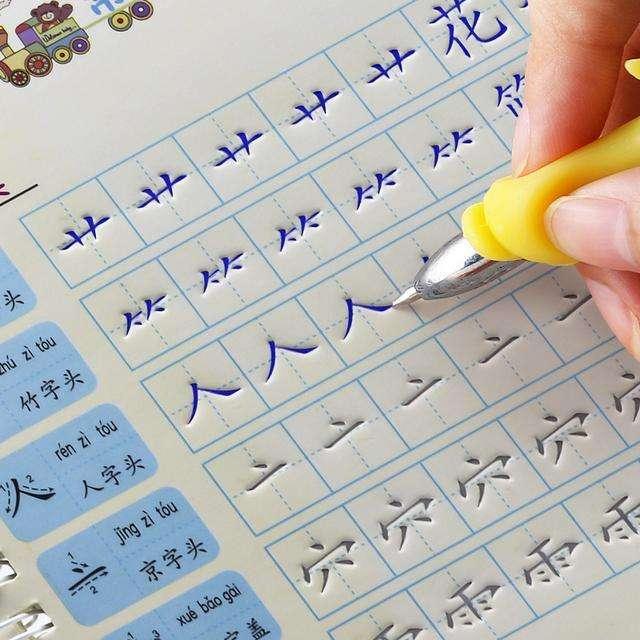 艹 艹 艹 艹 艹 花
⺮ ⺮ ⺮ ⺮ ⺮
人 人 人
亠 亠 亠 亠 亠
穴 穴 穴 穴
雨 雨 雨
头
zhú zì tóu
竹字头
rén zì tóu
人 人字头
jīng zì tóu
亠 京字头
xué bǎo gài
字盖